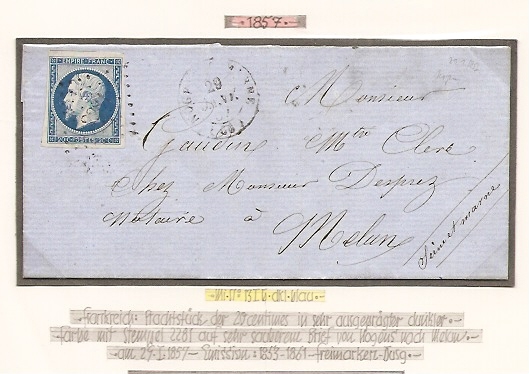 1857.
EMPIRE FRANC.
20C POSTES 20C
29
Monsieur
Gaudin, Mtre Clerc
Chez Monsieur Desprez
Notaire à Melun
Seine et marne
Mi. No 13 I b dkl. blau.
Frankreich: Prachtstück der 20 centimes in sehr ausgeprägter dunkler
Farbe mit Stempel 2281 auf sehr sauberem Brief von Nogens nach Melun
am 29.I.1857 - Emission: 1853-1861 - Freimarken-Ausg.